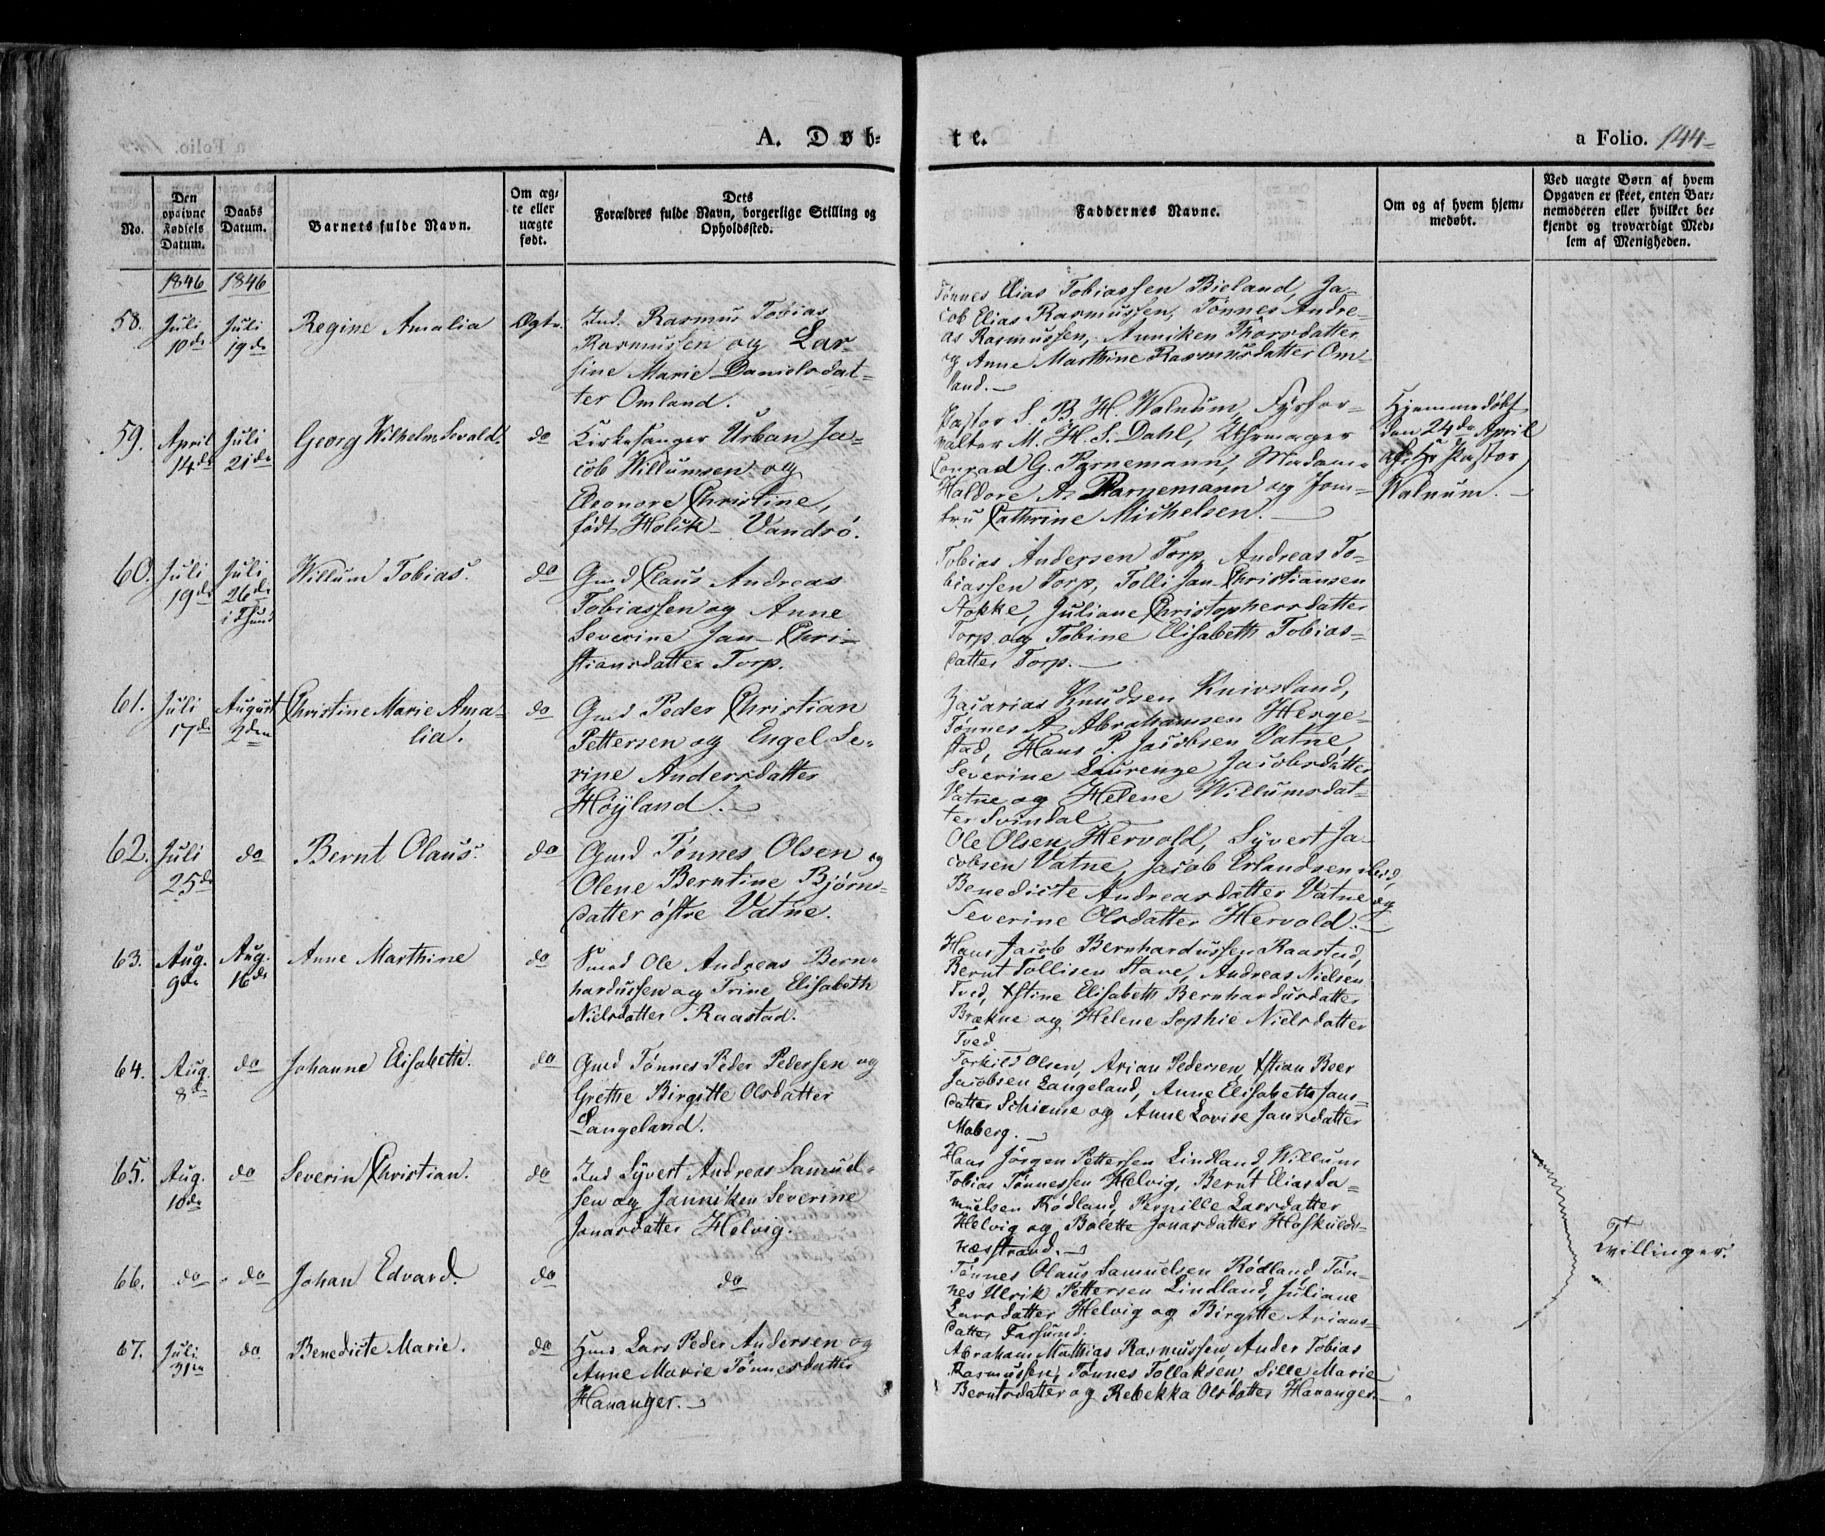 A. Døb-
te.
a Folio. 144-
No.
Den
opgivne
Fødsels
Datum.
Daabs
Datum.
Barnets fulde Navn.
Om æg-
te eller
uægte
født.
Dets
Forældres fulde Navn, borgerlige Stilling og
Opholdssted.
Faddernes Navne.
Om og af hvem hjem-
medøbt.
Ved uægte Børn af hvem
Opgaven er skeet, enten Bar-
nemoderen eller hvilket be-
kjendt og troværdigt Med-
lem af Menigheden.
1846
1846
58.
Juli
10de
Juli
19de
Regine Amalia
Ægte.
Ind. Rasmus Tobias
Rasmussen og Lar-
sine Marie Danielsdat-
ter Omland.
Tønnes Elias Tobiassen Bieland, Ja-
cob Elias Rasmussen, Tønnes Andre-
as Rasmussen, Anniken Thorsdatter
og Anne Marthine Rasmusdatter Om-
land.
59.
April
14de
Juli
21de
Georg Wilhelm Sevald.
do
Kirkesanger Urban Ja-
cob Willumsen og
Eleonore Christine,
født Holck - Vandsö.
Pastor S. B. H. Walnum, Fyrfor-
valter M. H. S. Dahl, Uhrmager
Conrad G. Parnemann, Madam
Haldore A. Parnemann og Jom-
fru Cathrine Michelsen.
Hjemmedøbt
den 24de April
af Hr Pastor
Walnum.
60.
Juli
19de
Juli
26de
i Fsund
Willum Tobias.
do
Gmd Claus Andreas
Tobiassen og Anne
Severine Jan-Chri-
stiansdatter Torp.
Tobias Andersen Torp, Andreas To-
biassen Torp, Tolli Jan Christiansen
Nokke, Juliane Christophersdatter
Torp og Tobine Elisabeth Tobias-
datter Torp.
61.
Juli
17de
August
2den
Christine Marie Ama-
lia.
do
Gmd Peder Christian
Pettersen og Engel Se-
rine Andersdatter
Höyland.
Zacarias Knudsen Knivsland,
Tønnes A. Abrahamsen Herge-
stad, Hans P. Jacobsen Vatne,
Severine Laurenze Jacobsdatter
Vatne og Helene Willumsdat-
ter Svindal.
62.
Juli
25de
do
Bernt Olaus.
do
Gmd Tönnes Olsen og
Olene Berntine Bjørns-
datter østre Vatne.
Ole Olsen Hervold, Syvert Ja-
cobsen Vatne, Jacob Erlandsen ibid,
Benedicte Andreasdatter Vatne og
Severine Olsdatter Hervold.
63.
Aug.
9de
Aug.
16de
Anne Marthine
do
Smed Ole Andreas Bern-
hardussen og Trine Elisabeth
Nielsdatter Raastad.
Hans Jacob Bernhardussen Raastad,
Bernt Tollisen Stave, Andreas Nielsen
Tved, Xstine Elisabeth Bernhardusdatter
Brækne og Helene Sophie Nielsdatter
Tved
64.
Aug.
8de
do
Johanne Elisabeth.
do
Gmd Tønnes Peder Pedersen og
Grethe Birgitte Olsdatter
Langeland.
Torkild Olsen, Arian Pedersen, Xstian Beer
Jacobsen Langeland, Anne Elisabeth Jans-
datter Schieme og Anne Lovise Jansdatter
Moberg.
65.
Aug.
10de
do
Severin Christian.
do
Ind Syvert Andreas Samuel-
sen og Janniken Severine
Jonasdatter Helvig.
Hans Jørgen Pettersen Lindland, Willum
Tobias Tønnessen Helvig, Bernt Elias Sa-
muelsen Rødland, Pernille Larsdatter
Helvig og Bolette Jonasdatter Høskulds-
næsstrand.
66.
do
do
Johan Edvard.
do
do
Tønnes Olaus Samuelsen Rødland, Tøn-
nes Ulrik Pettersen Lindland, Juliane
Larsdatter Helvig og Birgitte Arians-
datter Farsund.
Tvillinger.
67.
Juli
31te
do
Benedicte Marie.
do
Hmd Lars Peder Andersen og
Anne Marie Tønnesdatter
Hananger.
Abraham Mathias Rasmussen, Ander Tobias
Rasmussen, Tønnes Tollaksen, Sille Marie
Berntsdatter og Rebekka Olsdatter Hananger.